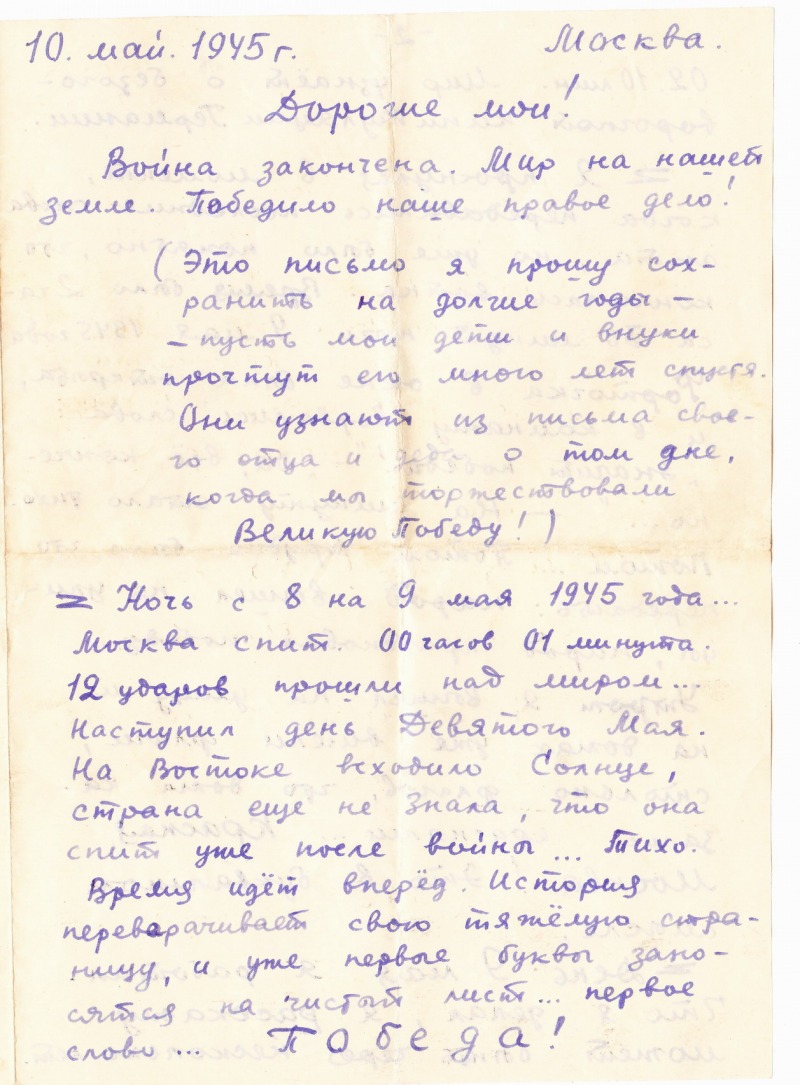 10. май. 1945 г. Москва.
Дорогие мои!
Война закончена. Мир на нашей
земле. Победило наше правое дело!
(Это письмо я прошу сох-
ранить на долгие годы –
– пусть мои дети и внуки
прочтут его много лет спустя.
Они узнают из письма свое-
го отца и деда о том дне,
когда мы торжествовали
Великую Победу!)
= Ночь с 8 на 9 мая 1945 года...
Москва спит. 00 часов 01 минута.
12 ударов прошли над миром...
Наступил день Девятого Мая.
На Востоке всходило Солнце,
страна еще не знала, что она
спит уже после войны... Тихо.
Время идёт вперёд История
переворачивает свою тяжёлую стра-
ницу, и уже первые буквы зано-
сятся на чистый лист... первое
слово... Победа!